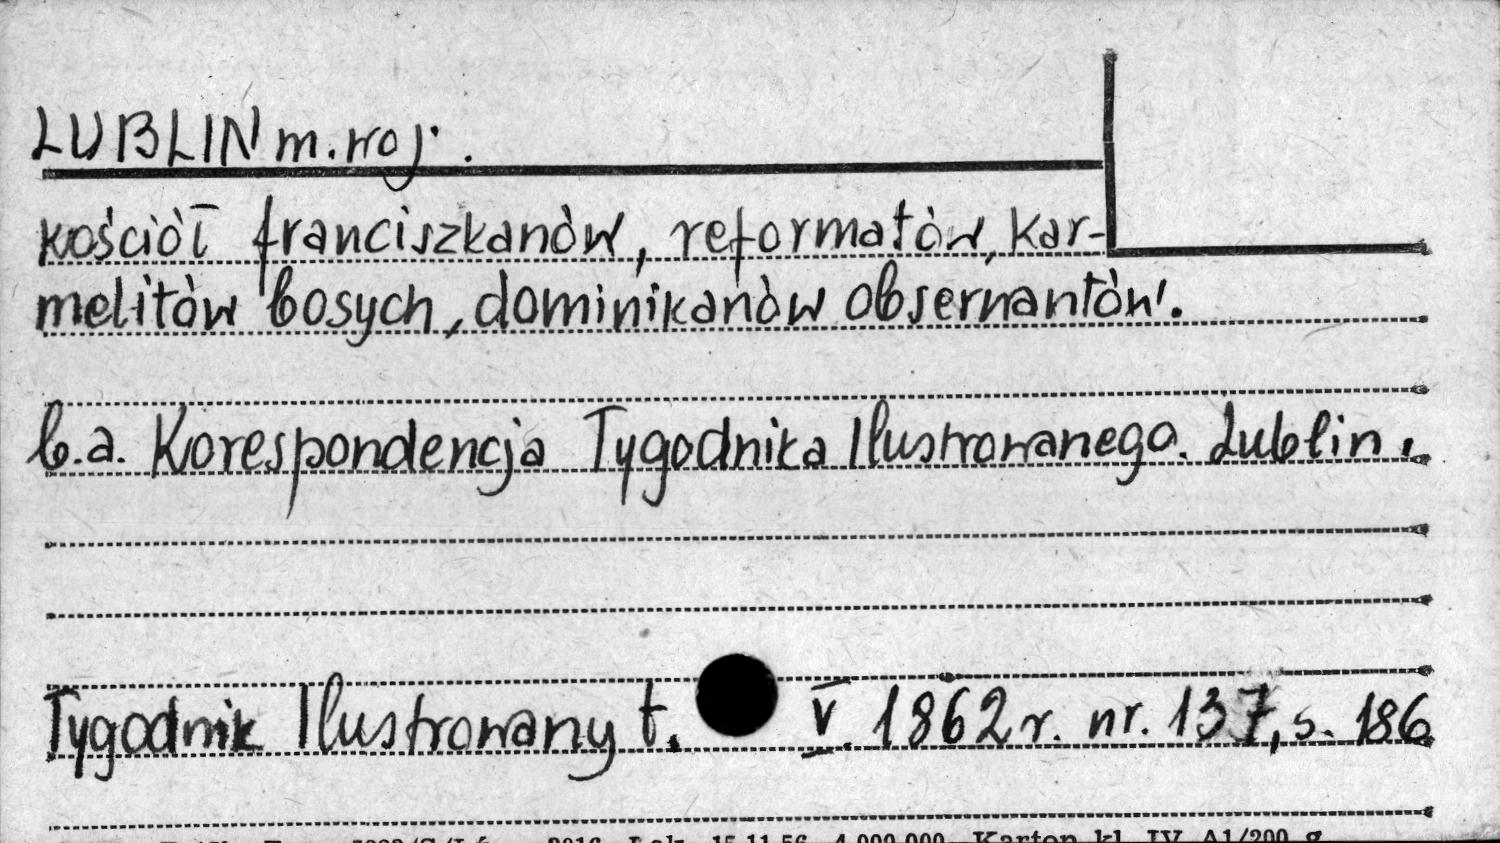 LUBLIN m. woj.
kościół franciszkanów, reformatów, kar-
melitów bosych, dominikanów obserwantów.
b.a. Korespondencja Tygodnika Ilustrowanego. Lublin.
Tygodnik Ilustrowany t. V. 1862 r. nr. 137, s. 186
15.11.56 4.000.000 Karton kl. IV A1/200 g